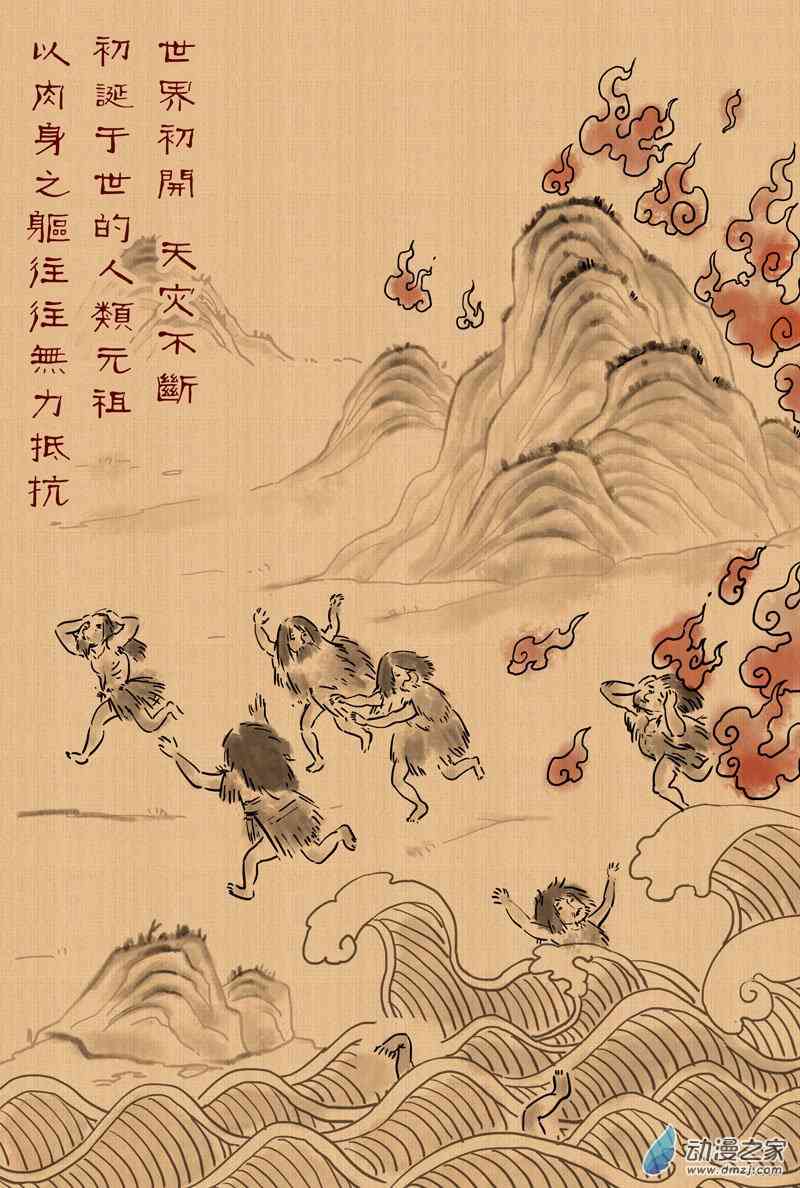 世界初開 天灾不斷
初誕于世的人類元祖
以肉身之軀往往無力抵抗
动漫之家
www.dmzj.com